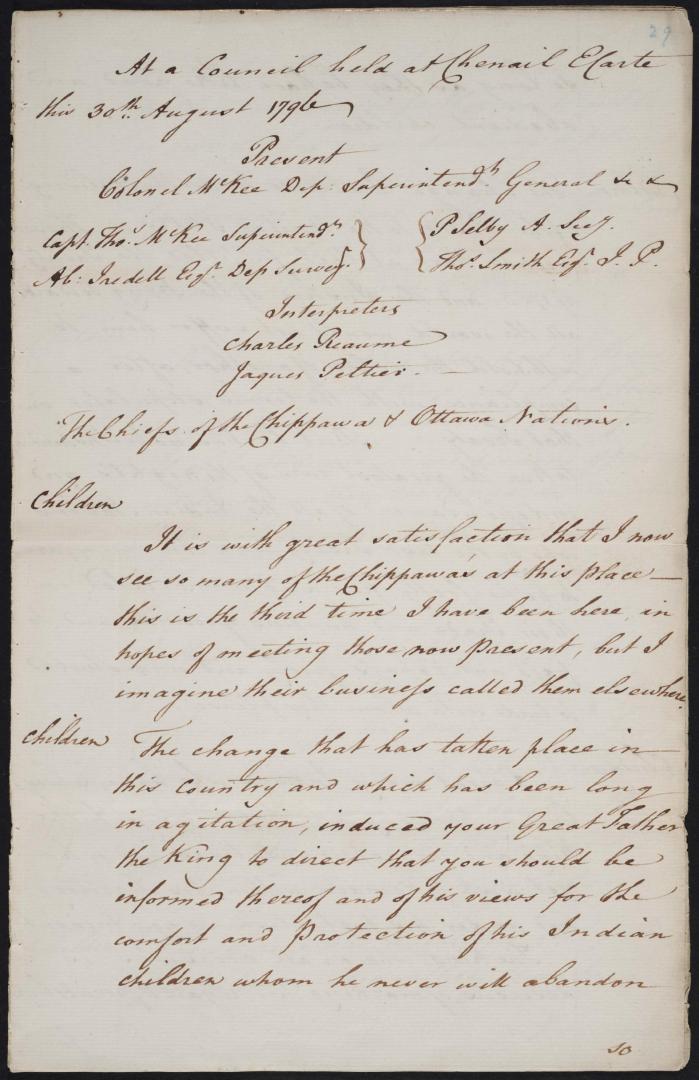 29
At a Council held at Chenail Ecarte
this 30th. August 1796
Present
Colonel McKee Dep: Superintendt. General &c &c
Capt. Thos. McKee Superintendt. } { P Selby A. Secy.
Ab: Iredell Esqr. Dep Surveyr. } { Thos. Smith Esqr. J. P.
Interpreters
Charles Reaume
Jaques Peltier.
The Chiefs of the Chippawa & Ottawa Nations.
Children
It is with great satisfaction that I now
see so many of the Chippawa's at this place —
this is the third time I have been here, in
hopes of meeting those now present, but I
imagine their business called them elsewhere.
Children The change that has taken place in
this Country and which has been long
in agitation, induced your Great Father
the King to direct that you should be
informed thereof and of his views for the
comfort and Protection of his Indian
children whom he never will abandon
so